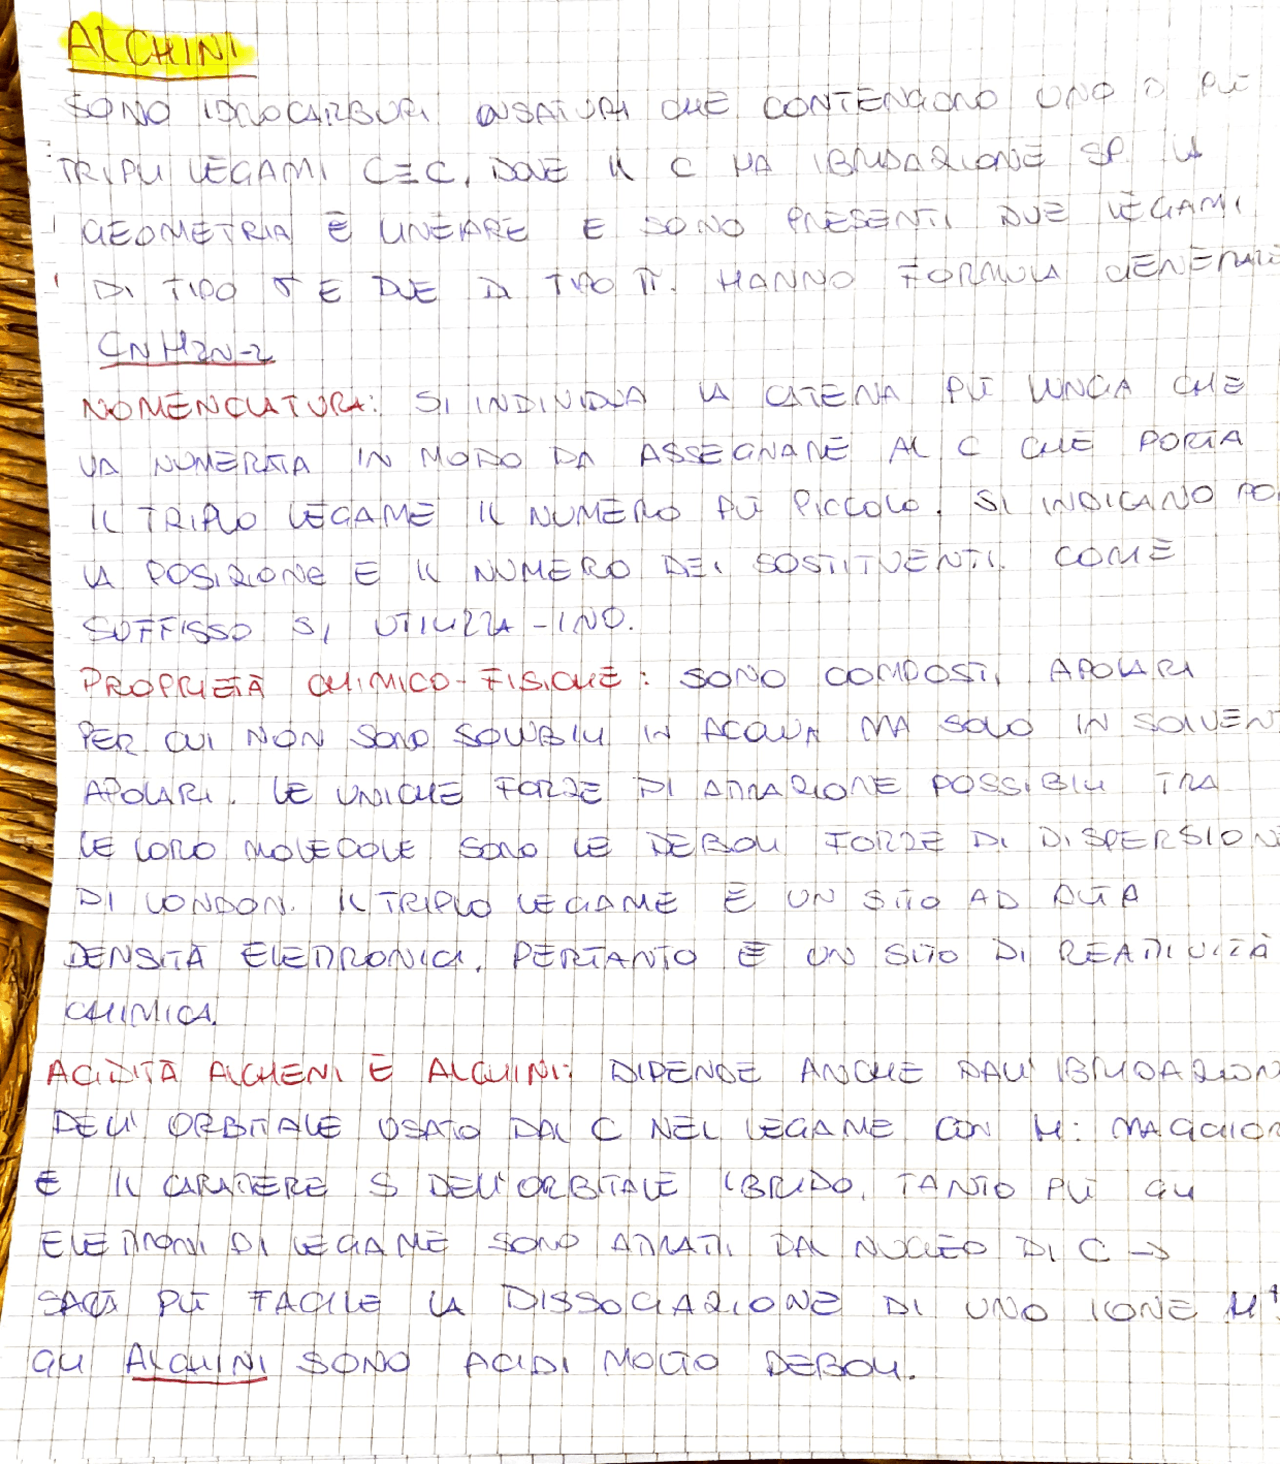 ALCHINI
SONO IDROCARBURI INSATURI CHE CONTENGONO UNO O PIÙ
TRIPLI LEGAMI C≡C, DOVE IL C HA IBRIDAZIONE SP. LA
GEOMETRIA È LINEARE E SONO PRESENTI DUE LEGAMI
DI TIPO σ E DUE DI TIPO π. HANNO FORMULA GENERALE
CNH2N-2
NOMENCLATURA: SI INDIVIDUA LA CATENA PIÙ LUNGA CHE
VA NUMERATA IN MODO DA ASSEGNARE AL C CHE PORTA
IL TRIPLO LEGAME IL NUMERO PIÙ PICCOLO. SI INDICANO POI
LA POSIZIONE E IL NUMERO DEI SOSTITUENTI. COME
SUFFISSO SI UTILIZZA -INO.
PROPRIETÀ CHIMICO-FISICHE: SONO COMPOSTI APOLARI
PER CUI NON SONO SOLUBILI IN ACQUA MA SOLO IN SOLVENT
APOLARI. LE UNICHE FORZE DI ATTRAZIONE POSSIBILI TRA
LE LORO MOLECOLE SONO LE DEBOLI FORZE DI DISPERSIONE
DI LONDON. IL TRIPLO LEGAME È UN SITO AD ALTA
DENSITÀ ELETTRONICA, PERTANTO È UN SITO DI REATTIVITÀ
CHIMICA.
ACIDITÀ ALCHENI E ALCHINI: DIPENDE ANCHE DALL'IBRIDAZION
DELL'ORBITALE USATO DAL C NEL LEGAME CON H: MAGGIOR
È IL CARATTERE S DELL'ORBITALE IBRIDO, TANTO PIÙ GLI
ELETTRONI DI LEGAME SONO ATTRATTI DAL NUCLEO DI C →
SARÀ PIÙ FACILE LA DISSOCIAZIONE DI UNO IONE H⁺.
GLI ALCHINI SONO ACIDI MOLTO DEBOLI.